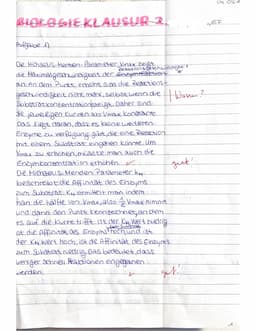 BIOLOGIE KLAUSUR 2
Aufgabe 1)
Der Michaelis-Menten-Parameter Vmax zeigt
die Maximalgeschwindigkeit der Enzymreaktion
an. An dem Punkt, erhöht sich die Reaktions-
geschwindigkeit nicht mehr, selbst wenn die
Substratkonzentration steigt. Daher sind
die jeweiligen Kurven bei Vmax konstant.
Das liegt daran, dass es keine weiteren
Enzyme zu verfügung gibt, die eine Reaktion
mit einem Substrat eingehen könnte. Um
Vmax zu erhöhen, müsste man auch die
Enzymkonzentration erhöhen.
Der Michaelis-Menten Parameter KM
beschreibt die Affinität des Enzyms
zum Substrat. KM ermittelt man indem
man die hälfte von Vmax, also ½ Vmax nimmt
und dann den Punkt kennzeichnet, an dem
es auf die Kurve trifft. Ist der KM Wert niedrig
ist die Affinität des Enzyms hoch und ist
der KM Wert hoch, ist die Affinität des Enzyms
zum Substrat niedrig. Das bedeutet, dass
weniger schnell Reaktionen eingegangen
werden.
Warum?
gut!
gut!
1